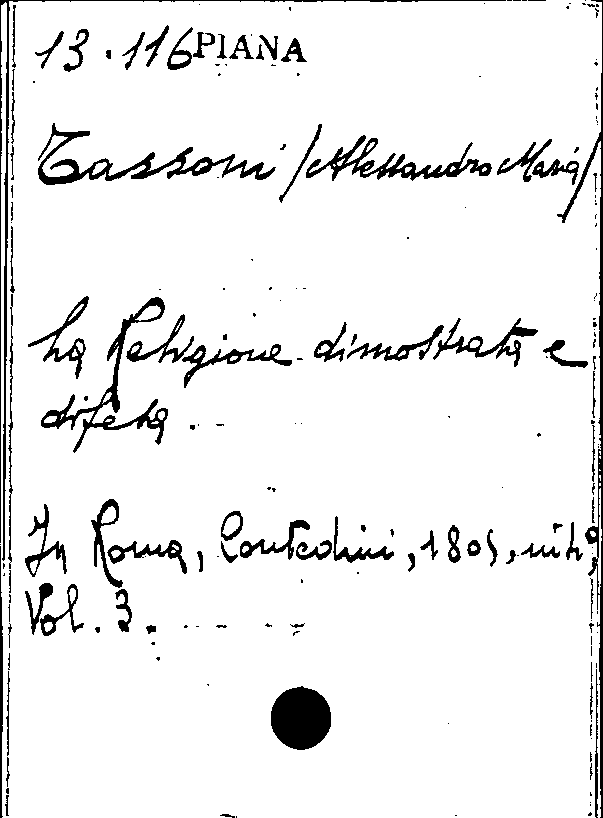 13.116 PIANA
Tassoni /Alessandro Maria/
La Religione dimostrata e
difesa.
In Roma, Contedini, 1805, in 4º,
Vol. 3.